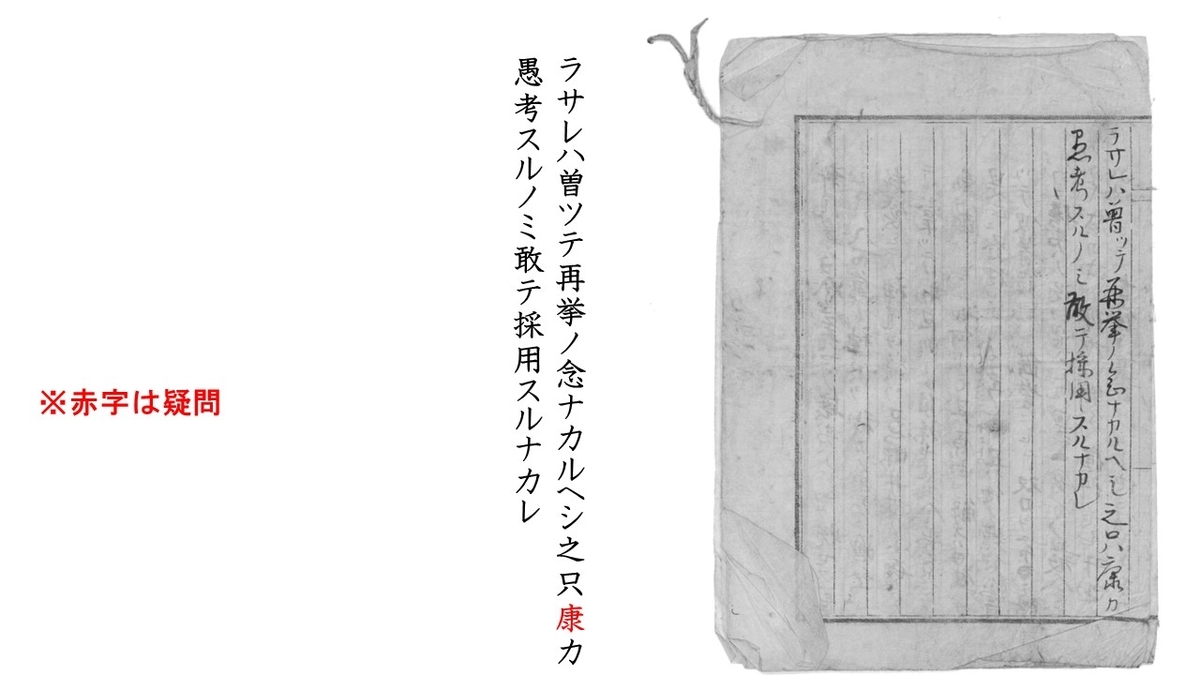 ラサレハ曽ツテ再挙ノ念ナカルヘシ之只康カ
愚考スルノミ敢テ採用スルナカレ
※赤字は疑問
ラサレハ曽ツテ再挙ノ念ナカルヘシ之只康カ
愚考スルノミ敢テ採用スルナカレ